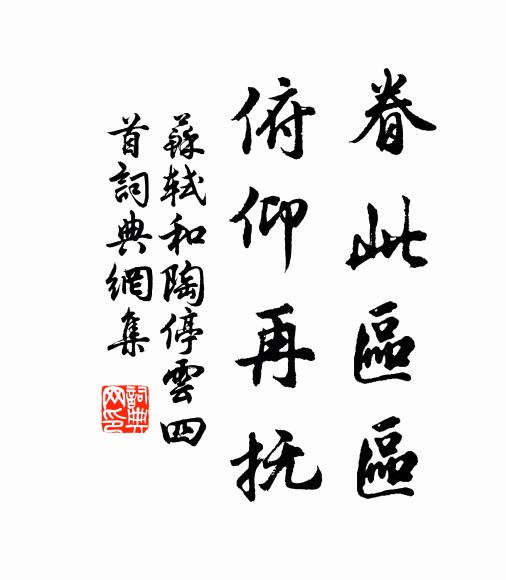 眷此區區
俯仰再抚
蘇軾和陶停雲四
首詞典網集
詞典網印